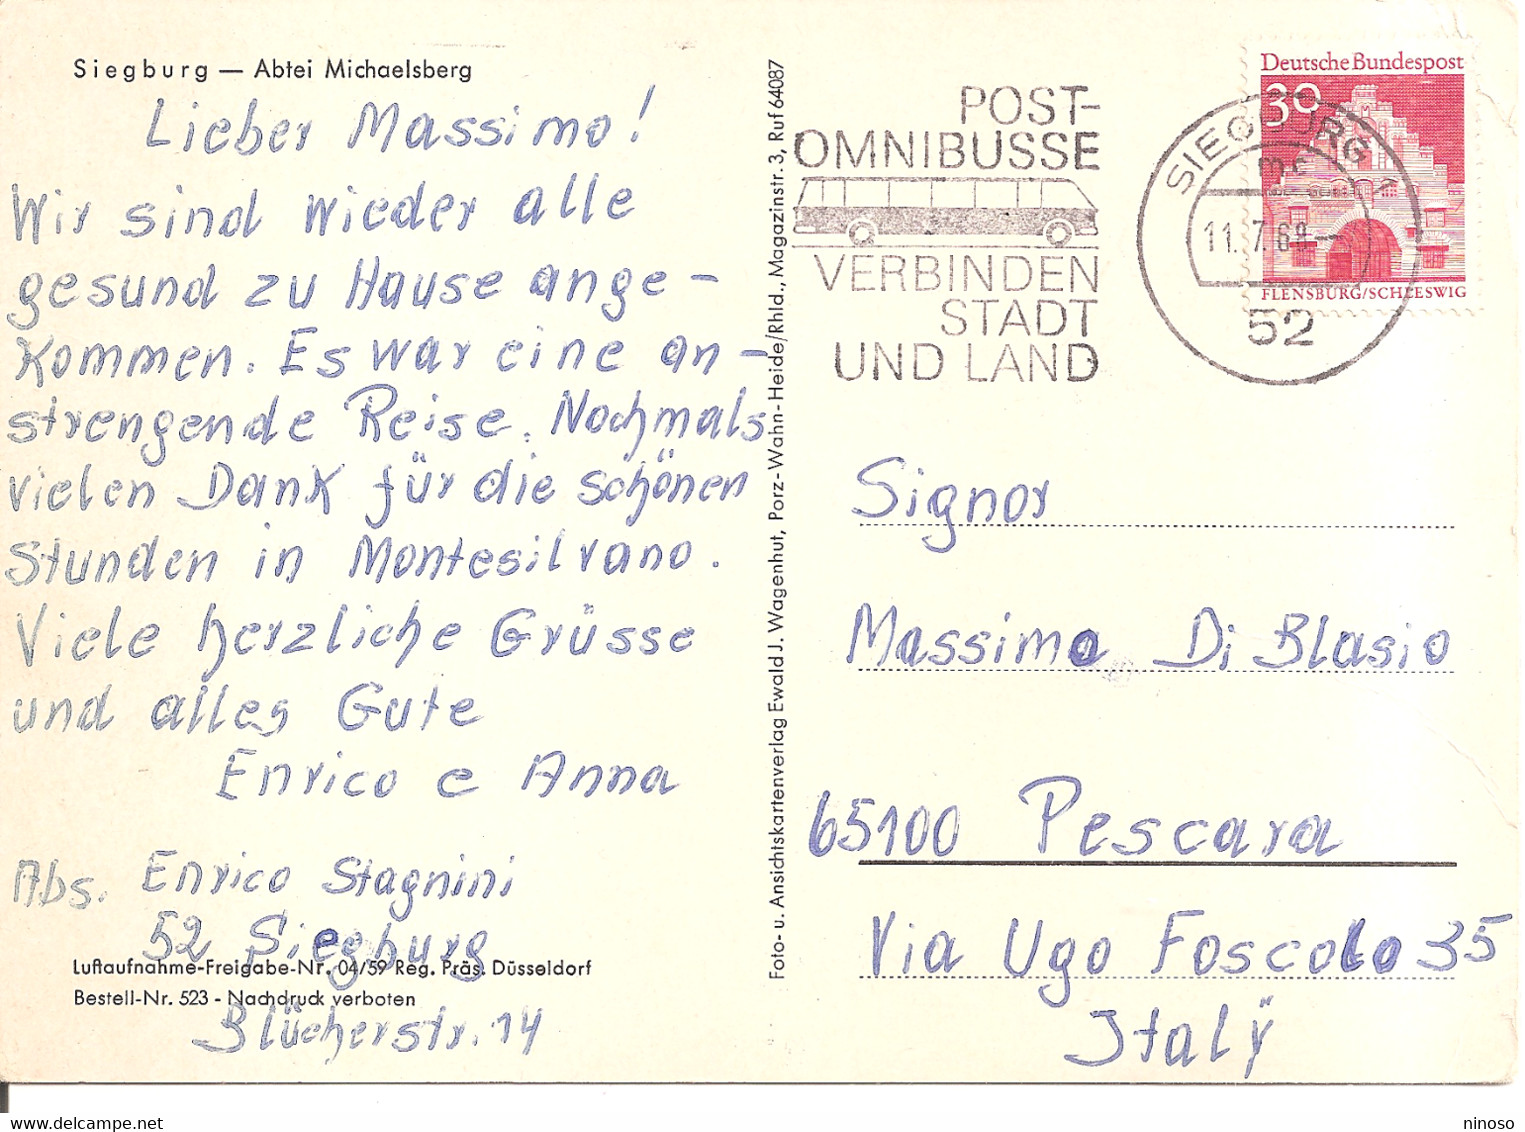 Siegburg — Abtei Michaelsberg
Lieber Massimo!
Wir sind wieder alle
gesund zu Hause ange-
kommen. Es war eine an-
strengende Reise. Nochmals
vielen Dank für die schönen
Stunden in Montesilvano.
Viele herzliche Grüsse
und alles Gute
Enrico e Anna
Abs. Enrico Stagnini
52 Siegburg
Luftaufnahme-Freigabe-Nr. 04/59 Reg. Präs. Düsseldorf
Bestell-Nr. 523 - Nachdruck verboten
Blücherstr. 14
Foto- u. Ansichtskartenverlag Ewald J. Wagenhut, Porz-Wahn-Heide/Rhld., Magazinstr. 3, Ruf 64087
POST-
OMNIBUSSE
VERBINDEN
STADT
UND LAND
SIEGBURG
11.7.69
52
Deutsche Bundespost
30
FLENSBURG/SCHLESWIG
Signor
Massimo Di Blasio
65100 Pescara
Via Ugo Foscolo 35
Italÿ
ninoso